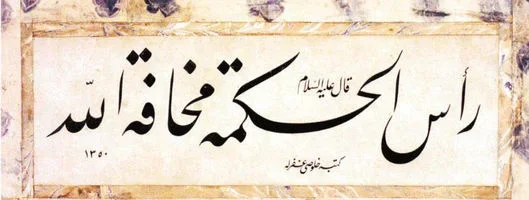 قال عليه السلام
رأس الحكمة مخافة الله
كتبه خلوصي غفرله
١٣٥٠